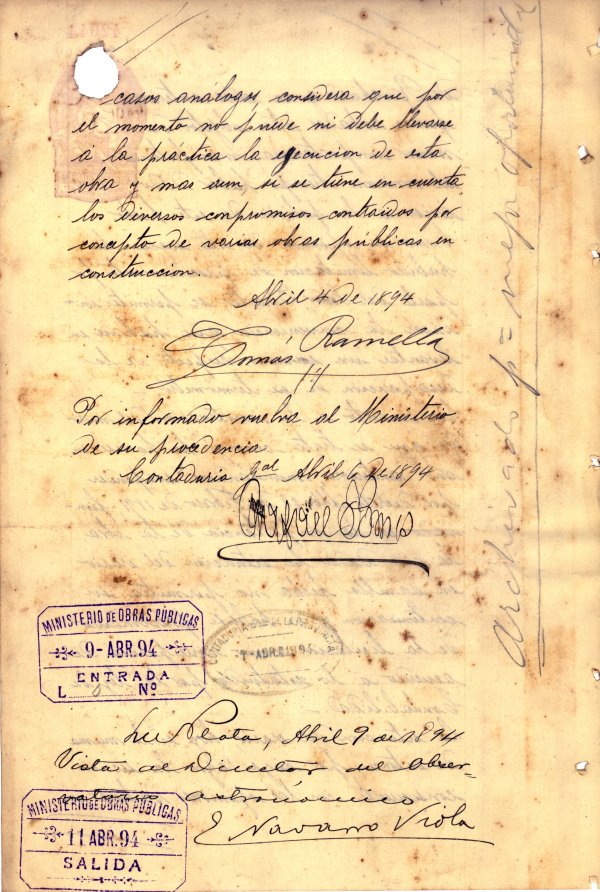 casos análogos, considera que por
el momento no puede ni debe llevarse
á la práctica la ejecucion de esta
obra y mas aun, si se tiene en cuenta
los diversos conpromisos contraidos por
concepto de varias obras públicas en
construccion.
Abril 4 de 1894
Tomás Ramella
Por informado vuelva al Ministerio
de su procedencia
Contaduria Gral Abril 6 de 1894
MINISTERIO DE OBRAS PÚBLICAS
9-ABR.94
ENTRADA
L Nº
7-ABR 94
La Plata, Abril 9 de 1894
Vista al Director del Obser-
vatorio astronómico
E Navarro Viola
MINISTERIO DE OBRAS PÚBLICAS
11 ABR.94
SALIDA
Archivado pª mejor oportunidad